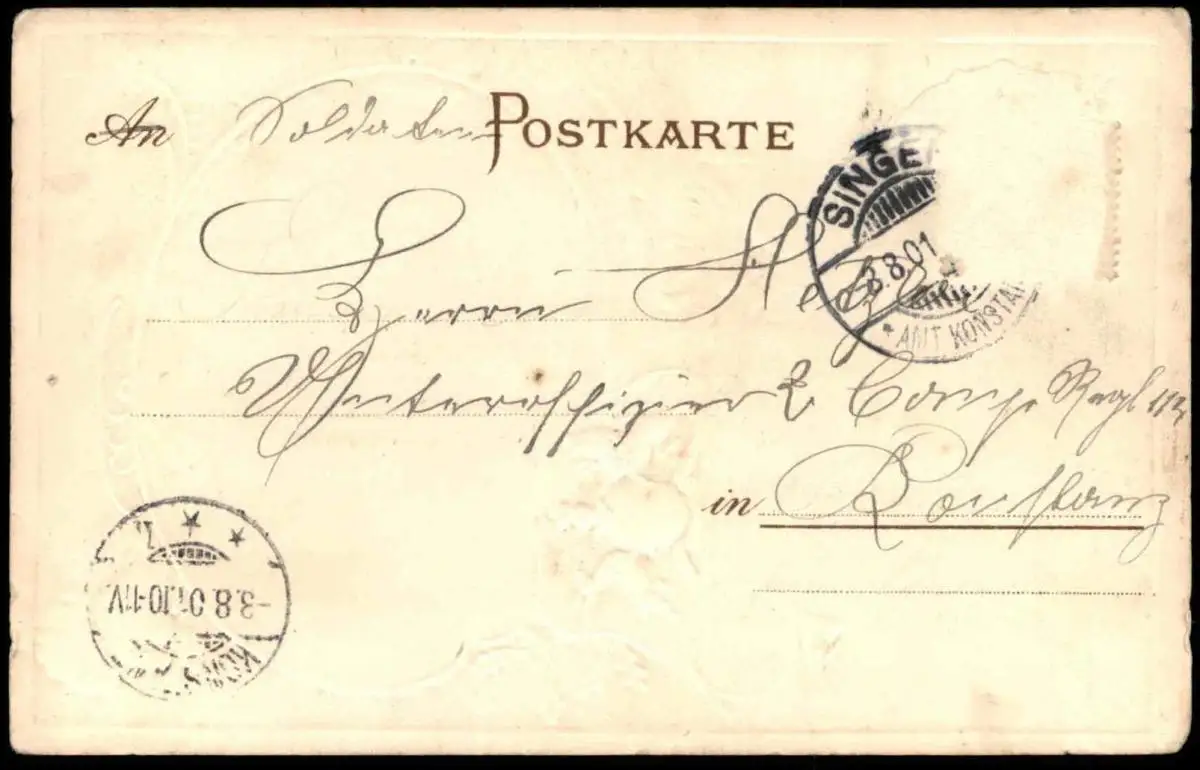 An Soldaten POSTKARTE
SINGE
3.8.01
* AMT KONSTA
Herrn
Unteroffizier 2 Comp. Regt 113
in Konstanz
-3.8.01.10-11V.
KONS